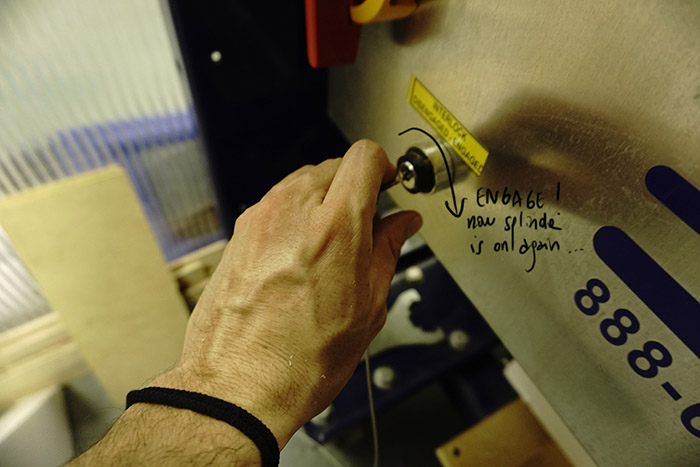 INTERLOCK
DISENGAGED-ENGAGED
ENGAGE!
now splinde
is on again...
888-